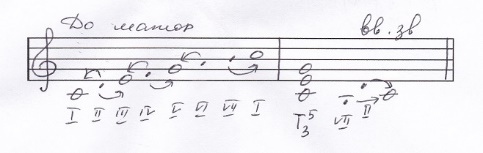 До мажор вв. зв
I II III IV V VI VII I T₃⁵ VII II